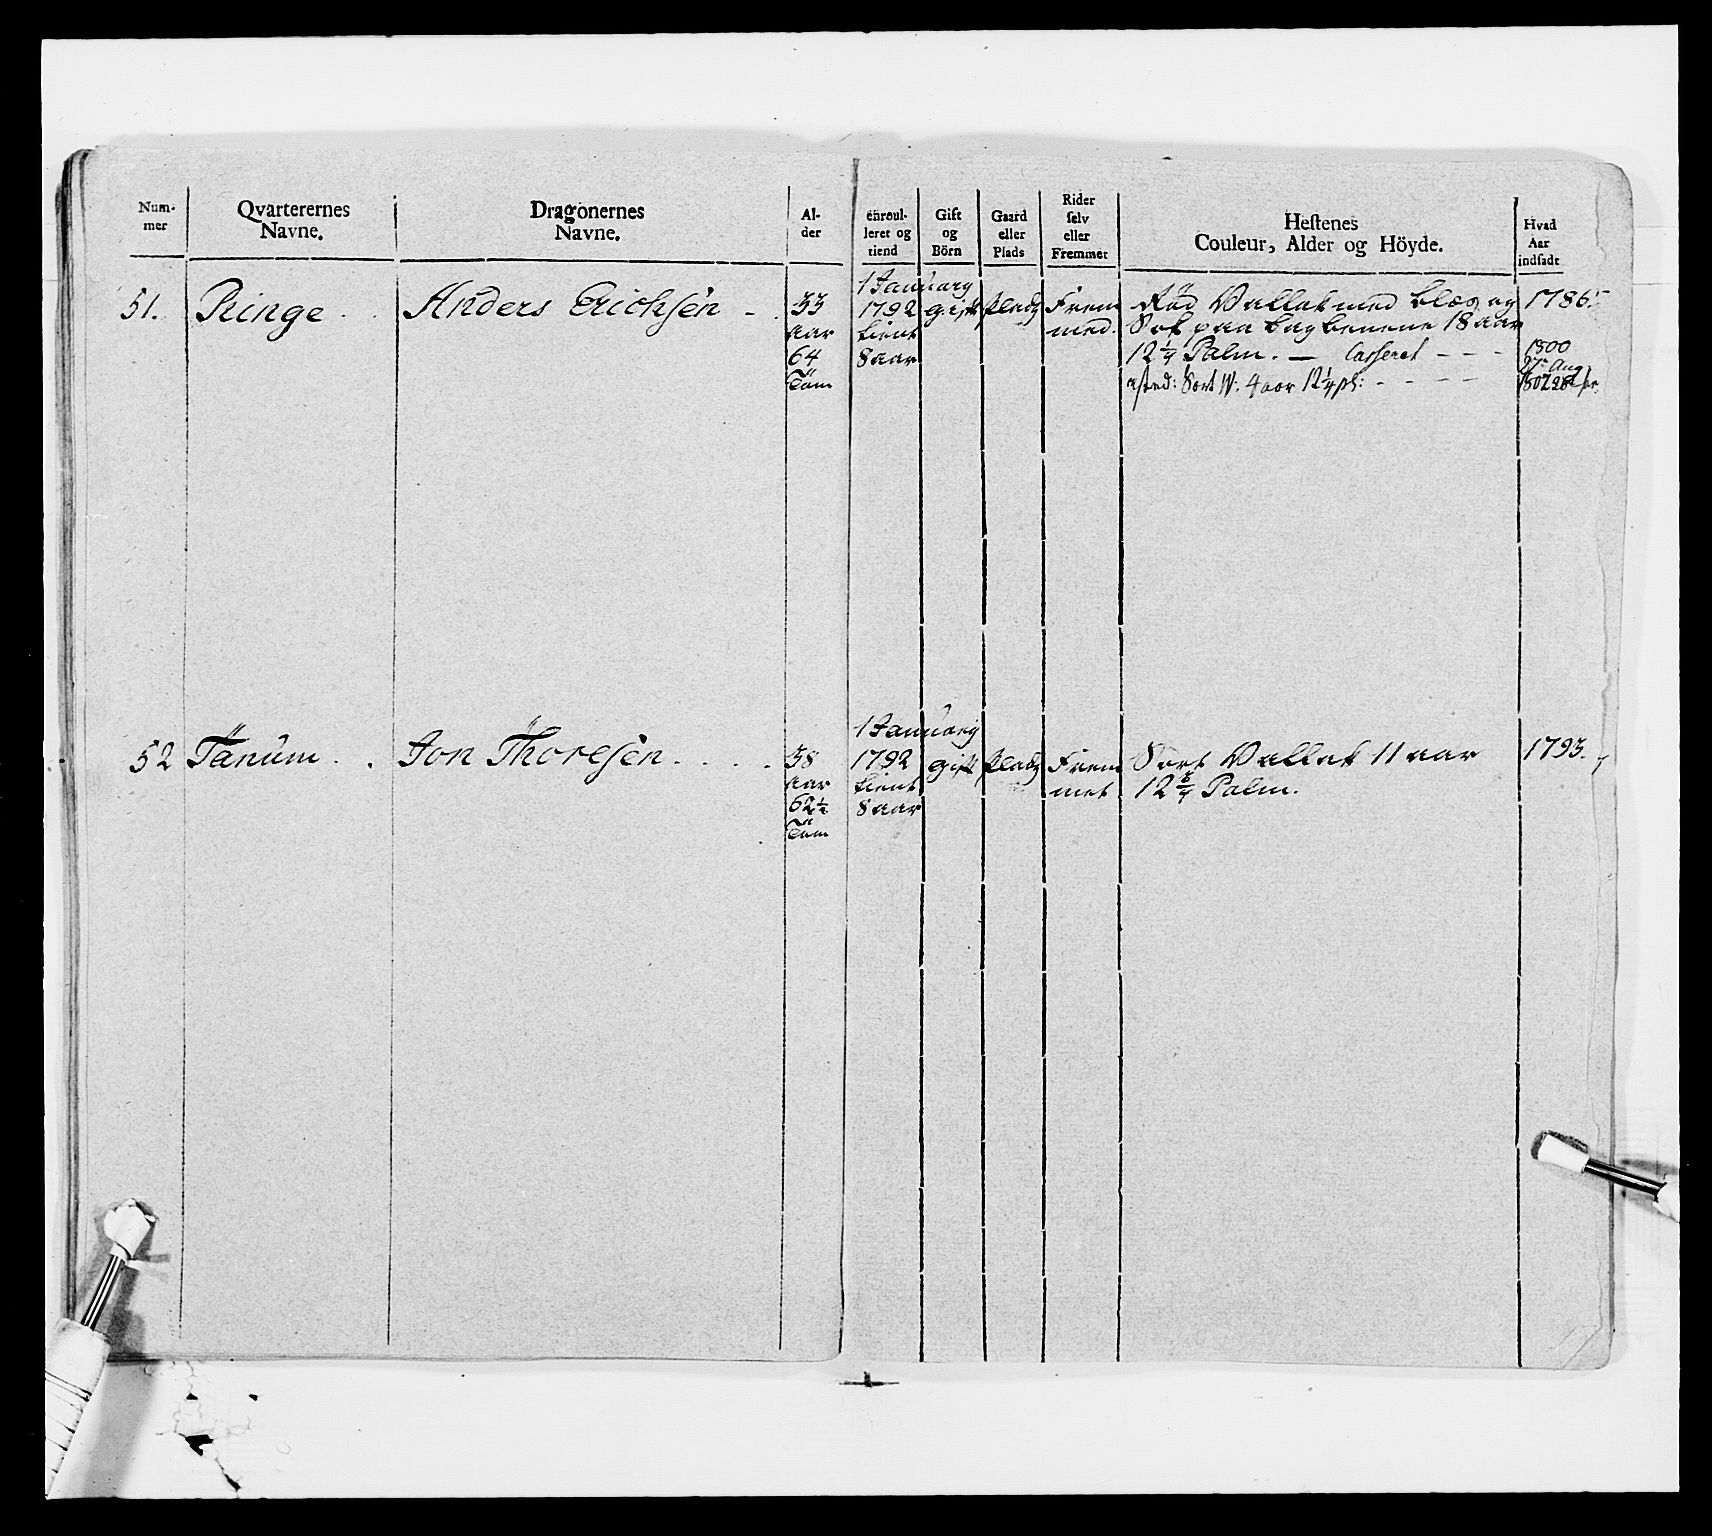 Num-
mer
Qvarterernes
Navne.
Dragonernes
Navne.
Al-
der
enroul-
leret og
tiend
Gift
og
Börn
Gaard
eller
Plads
Rider
selv
eller
Fremmet
Hestenes
Couleur, Alder og Höyde.
Hvad
Aar
indsadt
51. Ringe
Anders Erichsen
33
aar
64
Tom
1 January
1792
tient
8 aar
gift
Plads
Frem
med.
Rød Vallak med blæs og
Sok paa bag benene 18 aar
12 1/4 Palm. — Casseret - - -
Sort W. 4 aar 12 1/4 pl: - - - -
1786
1800
27 Aug
52 Tanum
Jon Thoresen
38
aar
62 1/2
Tom
1 January
1792
tient
8 aar
gift
Plads
Frem
met
Sort Vallak 11 aar
12 3/4 Palm.
1793.